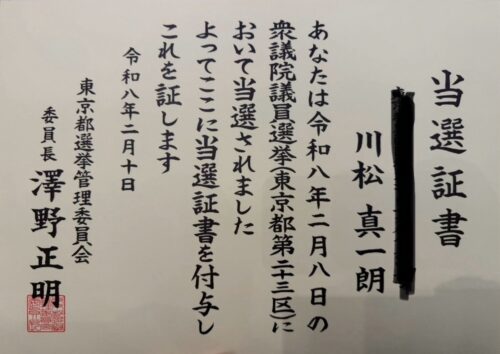 当選証書
川松 真一朗
あなたは令和八年二月八日の
衆議院議員選挙(東京都第二十三区)に
おいて当選されました
よってここに当選証書を付与し
これを証します
令和八年二月十日
東京都選挙管理委員会
委員長 澤野正明